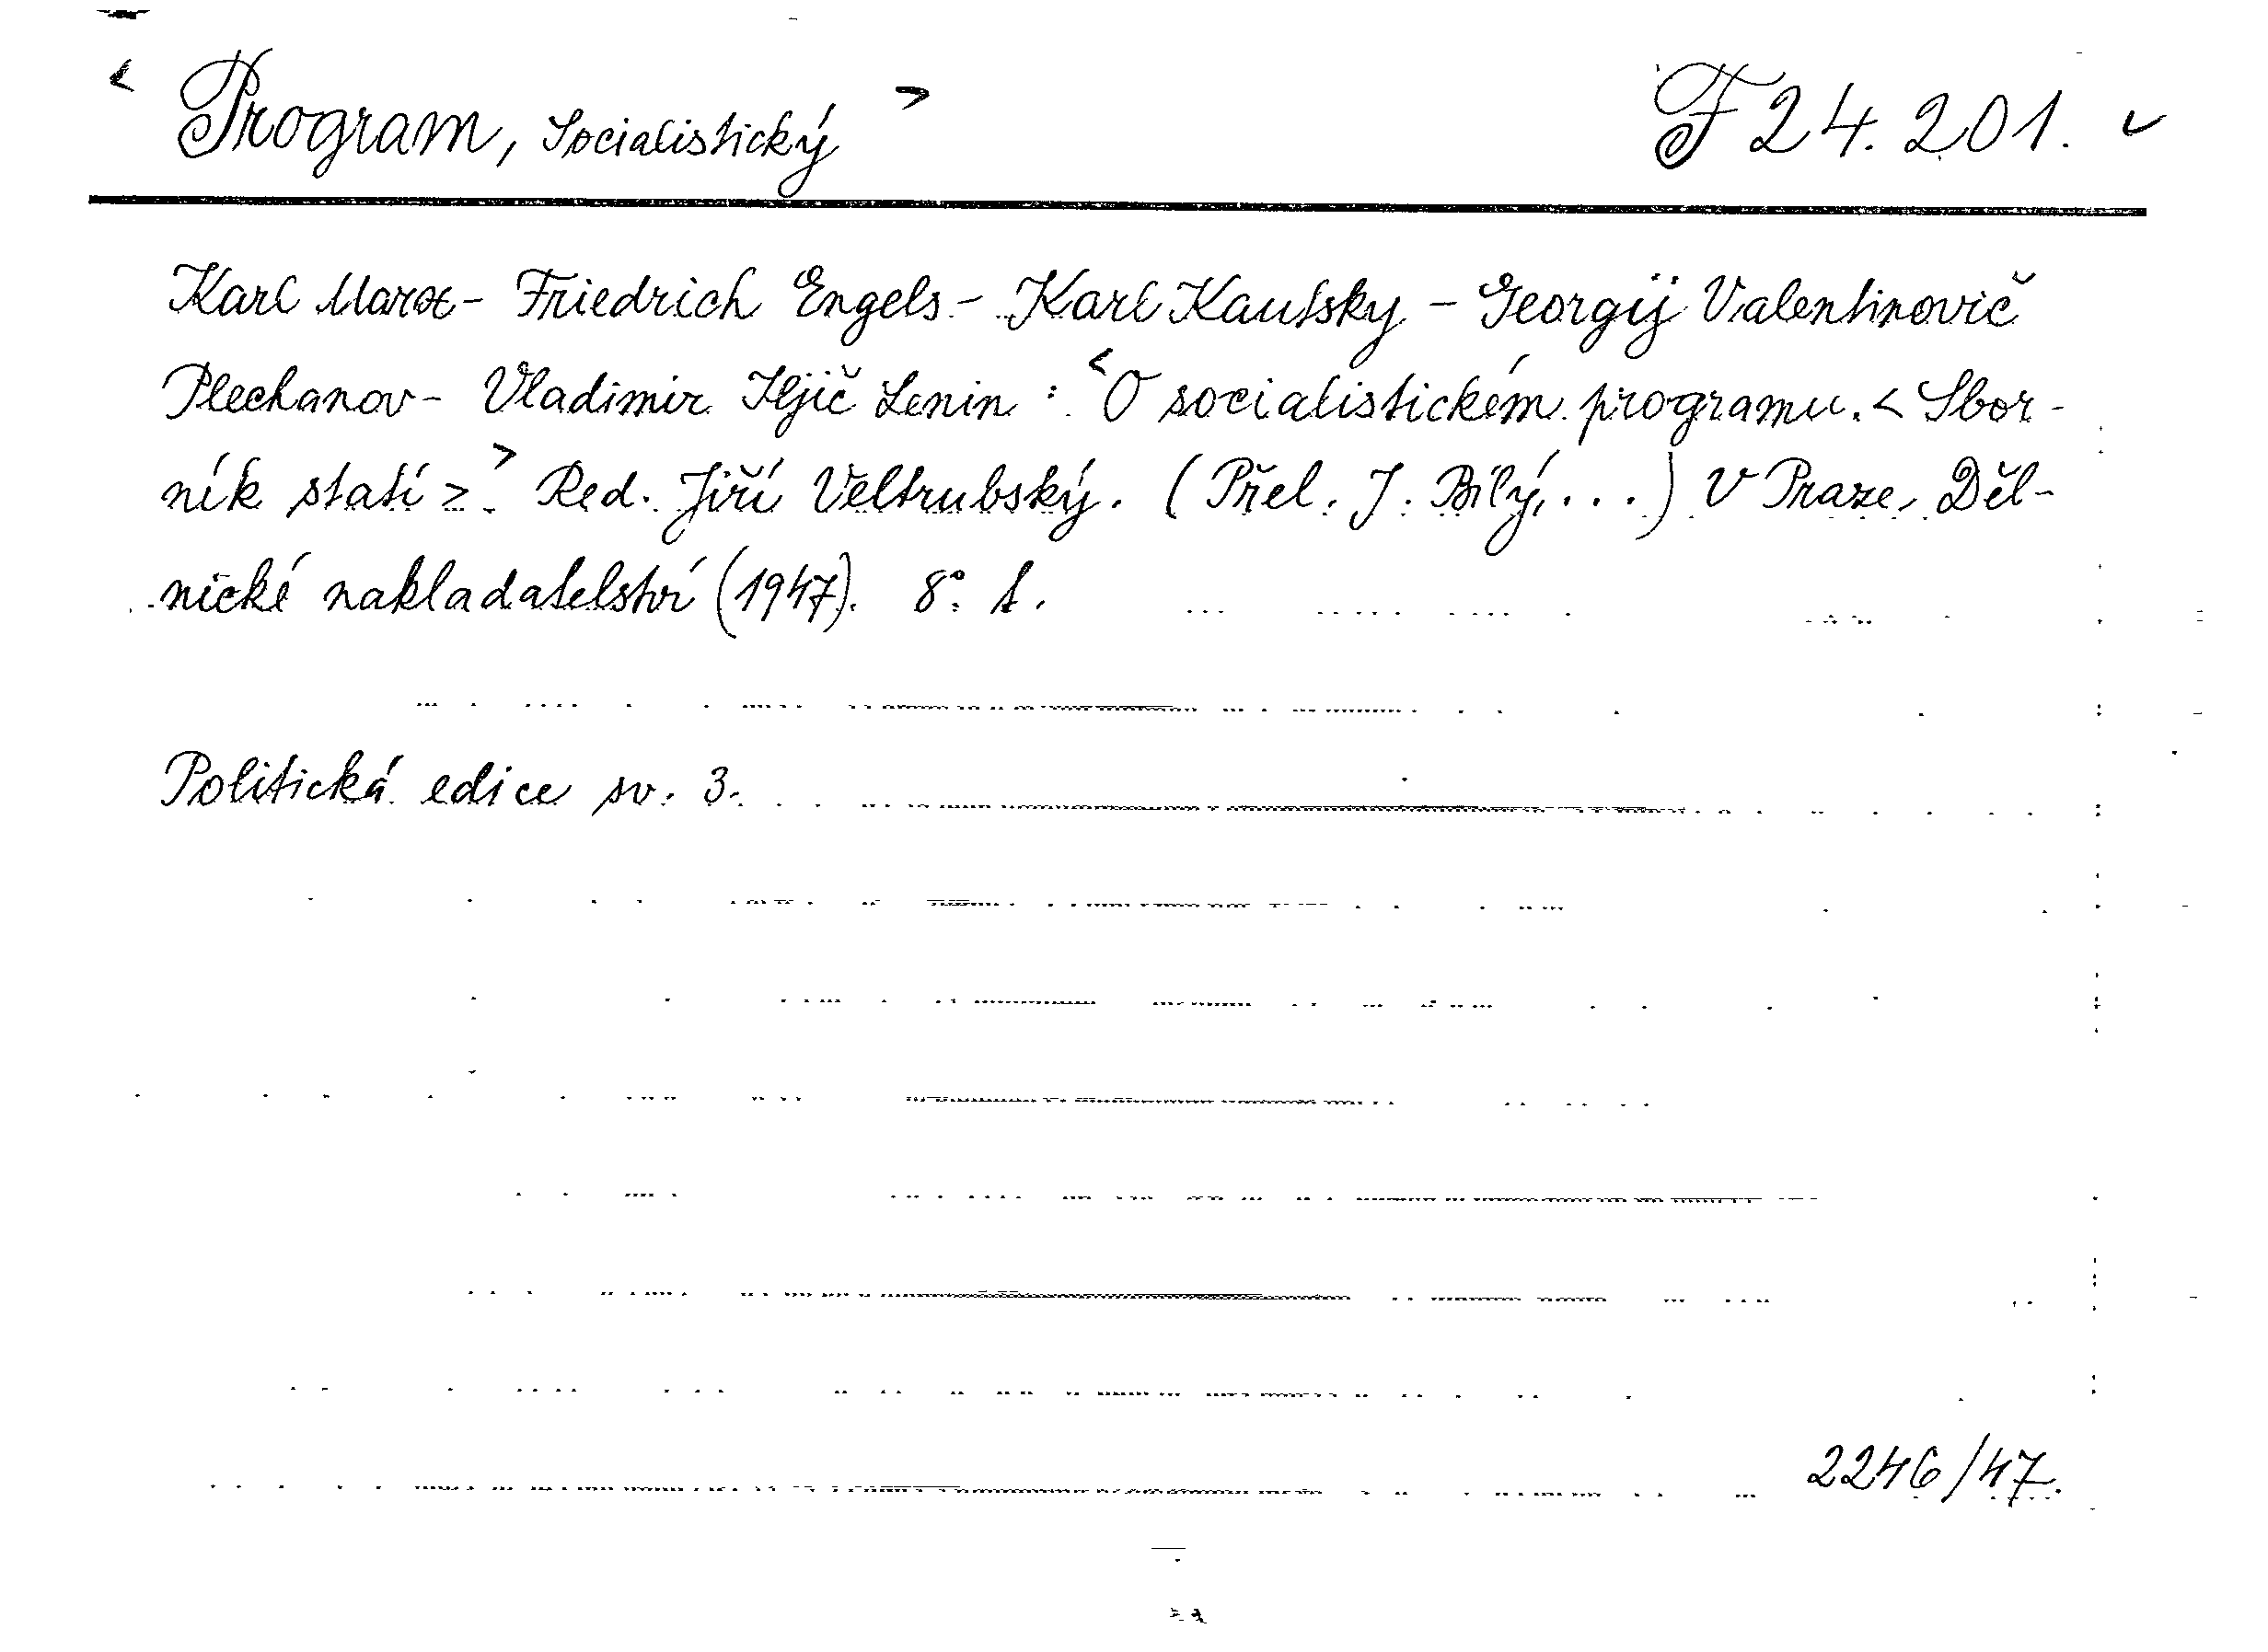 < Program, Socialistický > F 24.201.
Karl Marx - Friedrich Engels - Karl Kautsky - Georgij Valentinovič
Plechanov - Vladimir Iljič Lenin : <O socialistickém programu. < Sbor-
ník statí >> Red. Jiří Veltrubský. (Přel. J. Bílý, ...) V Praze, Děl-
nické nakladatelství (1947). 8°. 1.
Politická edice sv. 3.
2246/47.